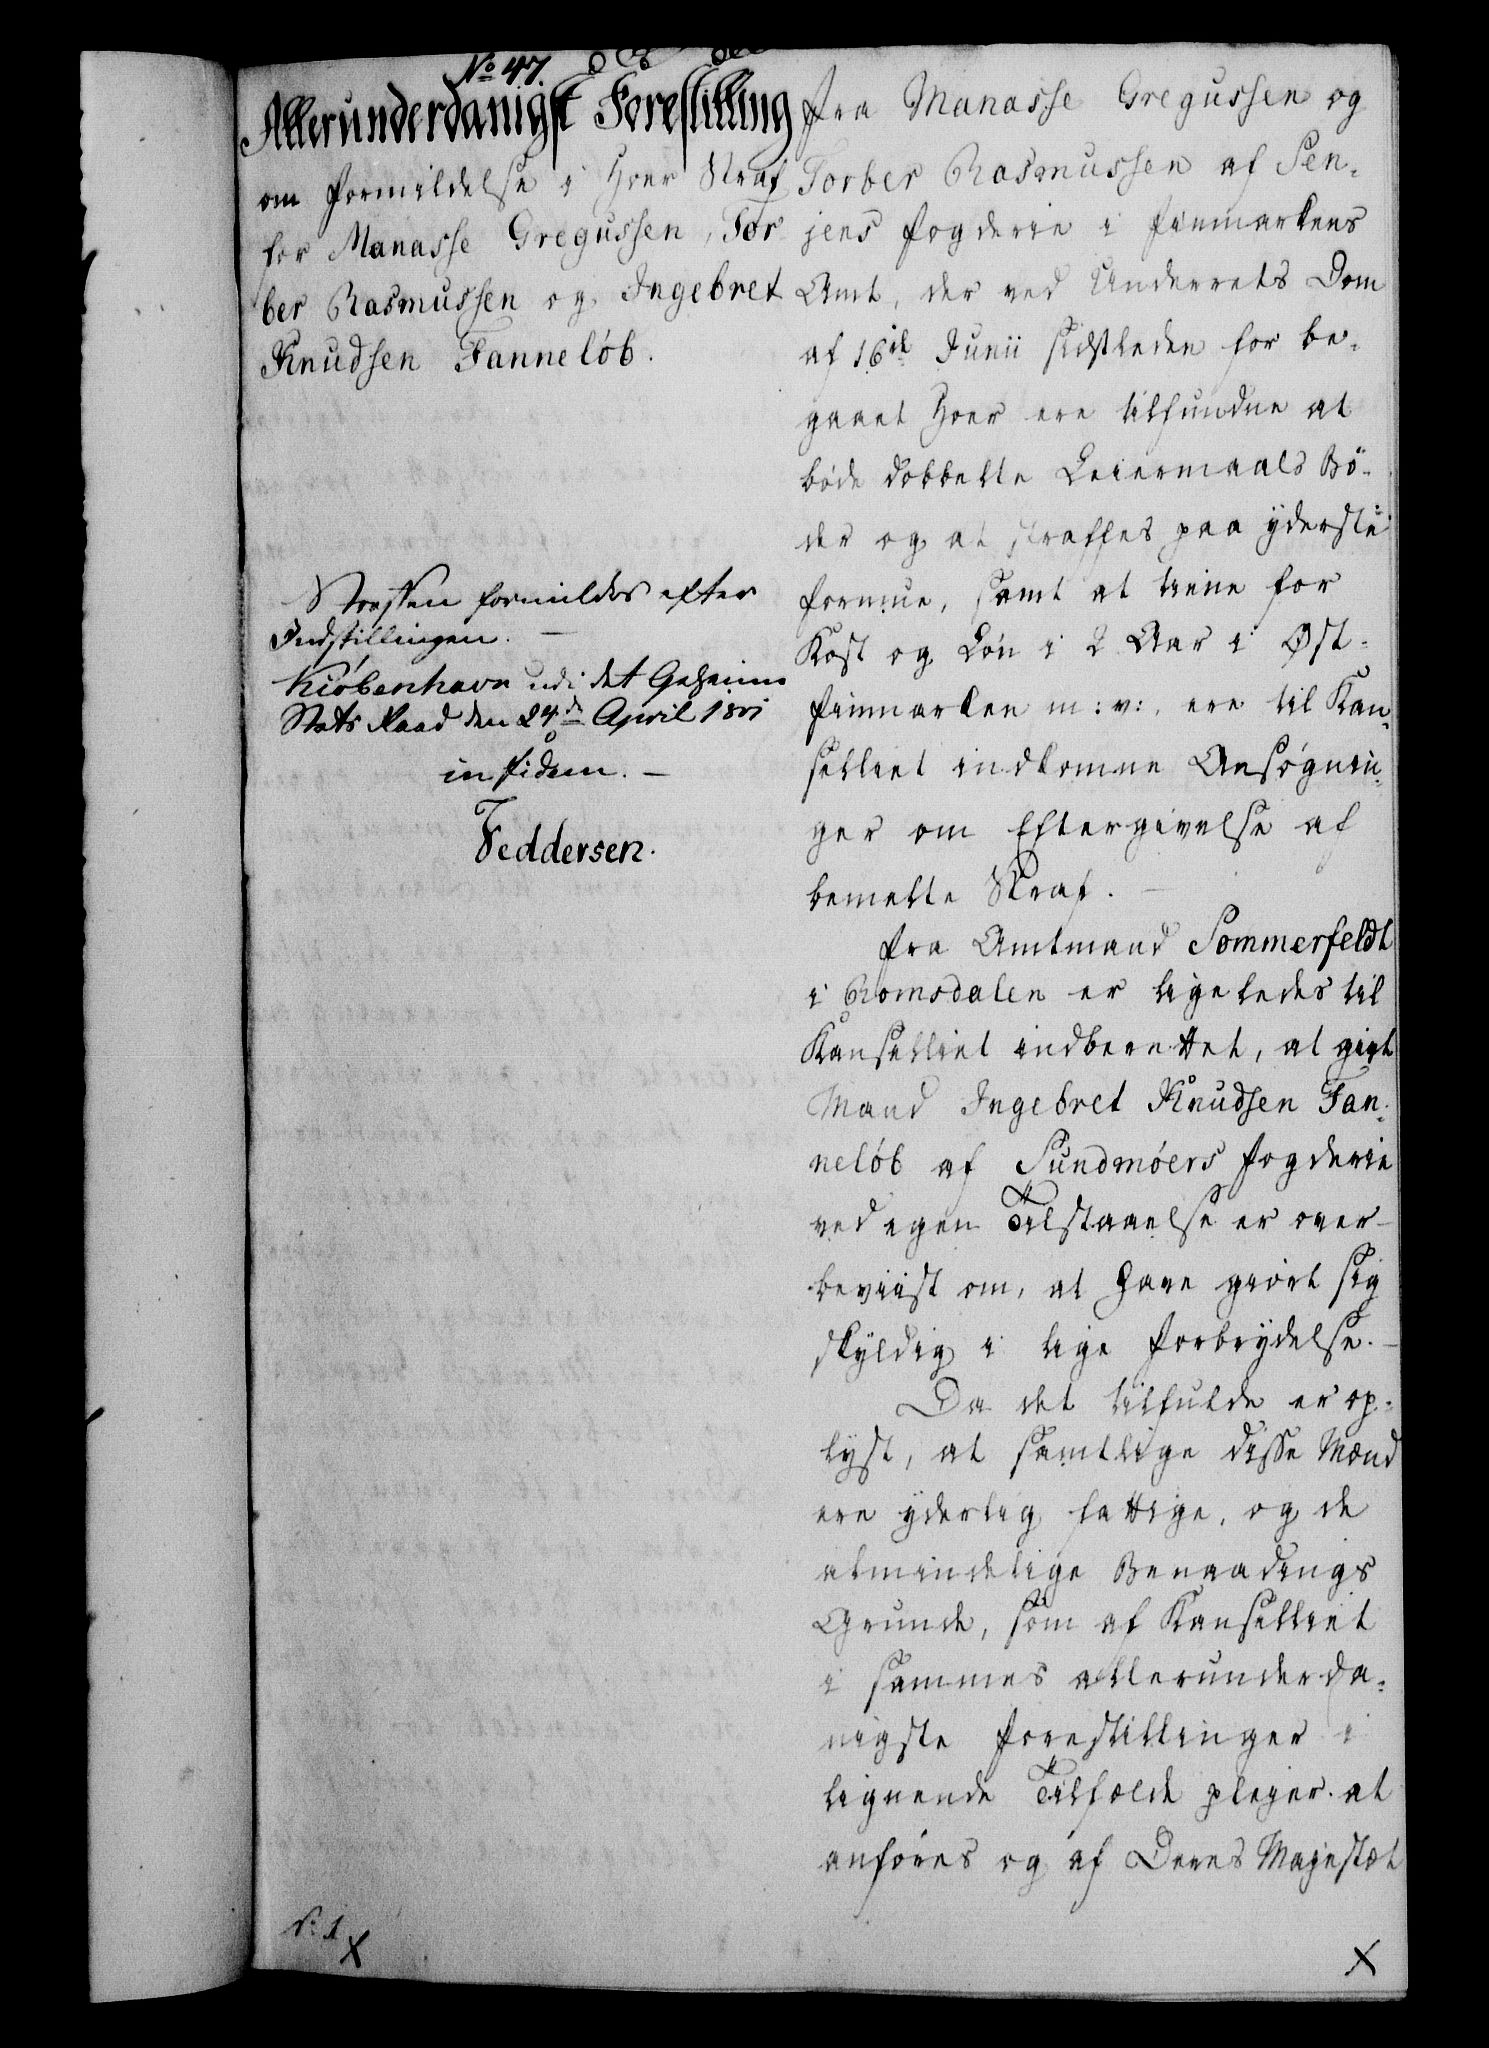 No 47.
Allerunderdanigst Forestilling
om Formildelse i Hoer Straf
for Manasse Gregussen, Tor
ber Rasmussen og Ingebret
Knudsen Fanneløb.
Straffen formildes efter
Indstillingen. —
Kiøbenhavn udi det Geheime
Stats Raad den 24de April 1801
in fidem. —
Feddersen.
Fra Manasse Gregussen og
Torber Rasmussen af Sen-
jens Fogderie i Finmarkens
Amt, der ved Underrets Dom
af 16de Junii sidstleden for be-
gaaet Hoer ere tilfundne at
bøde dobbelte Leiermaals Bö-
der og at straffes paa yderste
Formue, samt at tiene for
Kost og Løn i 2 Aar i Øst-
Finmarken m: v:, ere til Kan-
celliet indkomne Ansøgnin-
ger om Eftergivelse af
bemelte Straf. —
Fra Amtmand Sommerfeldt
i Romsdalen er ligeledes til
Kanselliet indberettet, at gift
Mand Ingebret Knudsen Fan-
neløb af Sundmøers Fogderie
ved egen Tilstaaelse er over-
beviist om, at have giort sig
skyldig i lige Forbrydelse. —
Da det tilfulde er op-
lyst, at samtlige disse Mænd
ere yderlig fattige, og de
almindelige Benaadings
Grunde, som af Kanselliet
i sammes allerunderda-
nigste Forestillinger i
lignende Tilfælde plejer at
anføres og af Deres Majestæt
X
X